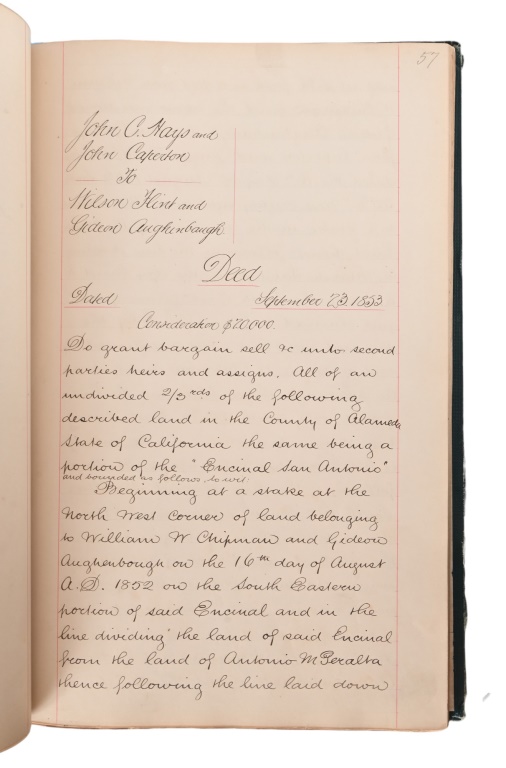 57
John C. Hays and
John Caperton
To
Wilson Flint and
Gideon Aughinbaugh
Deed
Dated September 23 1853
Consideration $20000.
Do grant bargain sell &c unto second
parties heirs and assigns. All of an
undivided 2/3rds of the following
described land in the County of Alameda
State of California the same being a
portion of the "Encinal San Antonio"
and bounded as follows, to wit:
Beginning at a stake at the
North West corner of land belonging
to William W Chipman and Gideon
Aughenbough on the 16th day of August
A.D. 1852 on the South Eastern
portion of said Encinal and in the
line dividing the land of said Encinal
from the land of Antonio M Peralta
thence following the line laid down